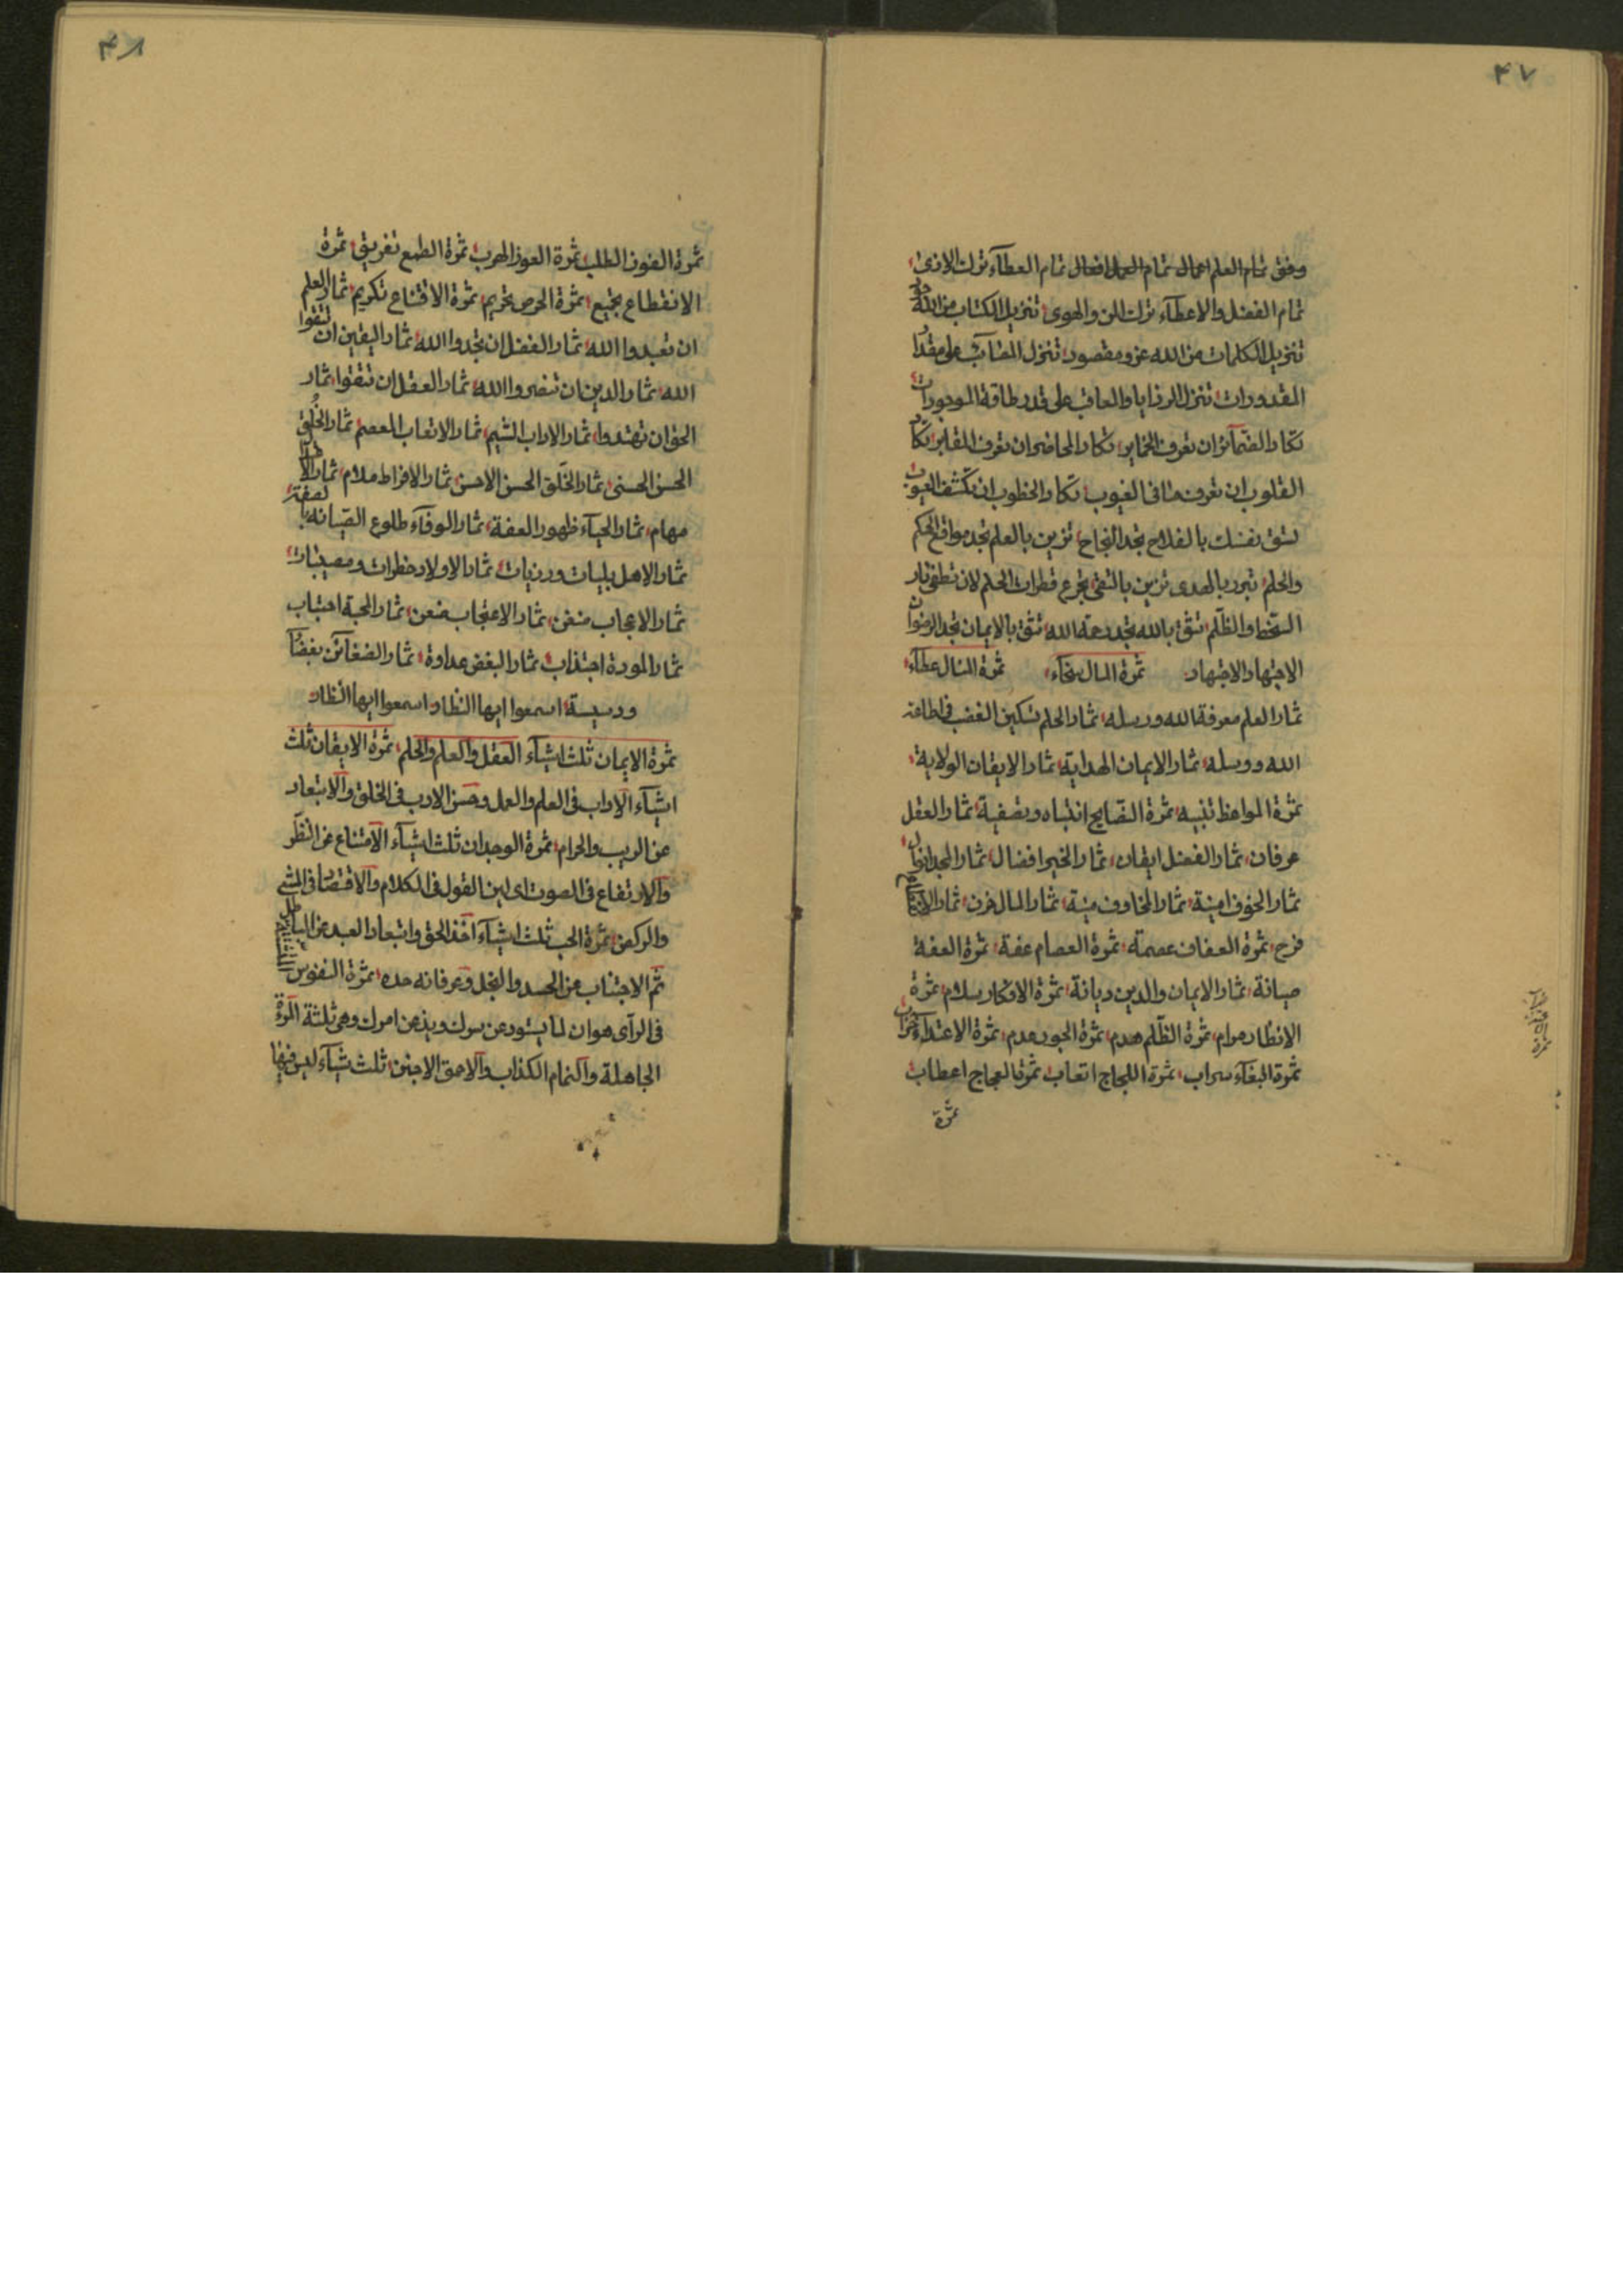 ٤٧
وفق تمام العلم اعمال تمام العمل افعال تمام العطآء ترك الاذى
تمام الفضل والاعطآء ترك المن والهوى تنزيل الكتاب من الله
تنزيل الكلمات من الله عز ومقصود تنزل المصآئب على مقدار
المقدورات تنزل الرزايا والعاقب على قدر طاقة الموجودات
تكاد الضمآئر ان تعرف الخماير تكاد المحاضر ان تعرف المقابر تكاد
القلوب ان تعرف ما فى الغيوب تكاد الخطوب ان تكشف العيوب
نفسك بالفلاح تجد النجاح تزين بالعلم تجد مواقع الحكم
والحلم تبرد بالهدى تزين بالتقى تجرع قطرات الحلم لان تطفى نار
السخط والظلم تثق بالله تجد رحمة الله تثق بالايمان تجد الرضوان
الاجتهاد والاجتهاد ثمرة المال سخآء ثمرة المنال عطآء
ثمار العلم معرفة الله ورسله ثمار الحلم تسكين الغضب فى اطاعة
الله ورسله ثمار الايمان الهداية ثمار الايقان الولاية
ثمرة المواعظ تنبيه ثمرة النصايح انتباه وتصفية ثمار العقل
عرفان ثمار الفضل ايقان ثمار الخير افضال ثمار المجد
ثمار الخوف امنية ثمار المخاوف منية ثمار المال حزن ثمار
فرح ثمرة العفاف عصمة ثمرة العصام عفة ثمرة العفة
صيانة ثمار الايمان والدين ديانة ثمرة الافكار سلام ثمرة
الانظار مرام ثمرة الظلم هدم ثمرة الجود عدم ثمرة الاعتدآء
ثمرة البغآء سراب ثمرة اللجاج اتعاب ثمرة العجاج اعطاب
ثمرة
٤٨
ثمرة الفوز الطلب ثمرة العوز الهرب ثمرة الطمع تفريق ثمرة
الانقطاع تجميع ثمرة الحرص تحريم ثمرة الاقناع تكريم ثمار العلم
ان تعبدوا الله ثمار الفضل ان تجدوا الله ثمار اليقين ان تتقوا
الله ثمار الدين ان تنصروا الله ثمار العقل ان تتقوا ثمار
الحق ان تهتدوا ثمار الاداب الشيم ثمار الاتعاب المعصم ثمار الخُلق
الحسن الحسنى ثمار الخَلق الحسن الاحسن ثمار الافراط ملام ثمار
مهام ثمار الحيآء ظهور العفة ثمار الوفآء طلوع الصيانه
ثمار الاهل بليات ورزيات ثمار الاولاد خطرات ومصيبات
ثمار الاعجاب ثمار الاعتجاب ثمار المحبة اجتباب
ثمار المودة اجتذاب ثمار البغض عداوة ثمار الضغآئن بغضآ
ودسيسة اسمعوا ايها النظار اسمعوا ايها النظار
ثمرة الايمان ثلث اشيآء العقل والعلم والحلم ثمرة الايقان ثلث
اشيآء الآداب فى العلم والعمل وحسن الادب فى الخلق والابتعاد
عن الريب والحرام ثمرة الوجدان ثلث اشيآء الامتناع عن النظر
والارتفاع فى الصوت اى لين القول فى الكلام والاقتصاد فى المشى
والركض ثمرة الحب ثلث اشيآء اخذ الحق وابتعاد العبد عن الباطل
ثم الاجتناب من الحسد والبخل وعرفانه حده ثمرة النفوس
فى الرآى هو ان لما يشود عن سرك ويذهن امرك وهى ثلثة المرءة
الجاهلة والنمام الكذاب والاحمق الاجنن ثلث شيآء ليس فيها